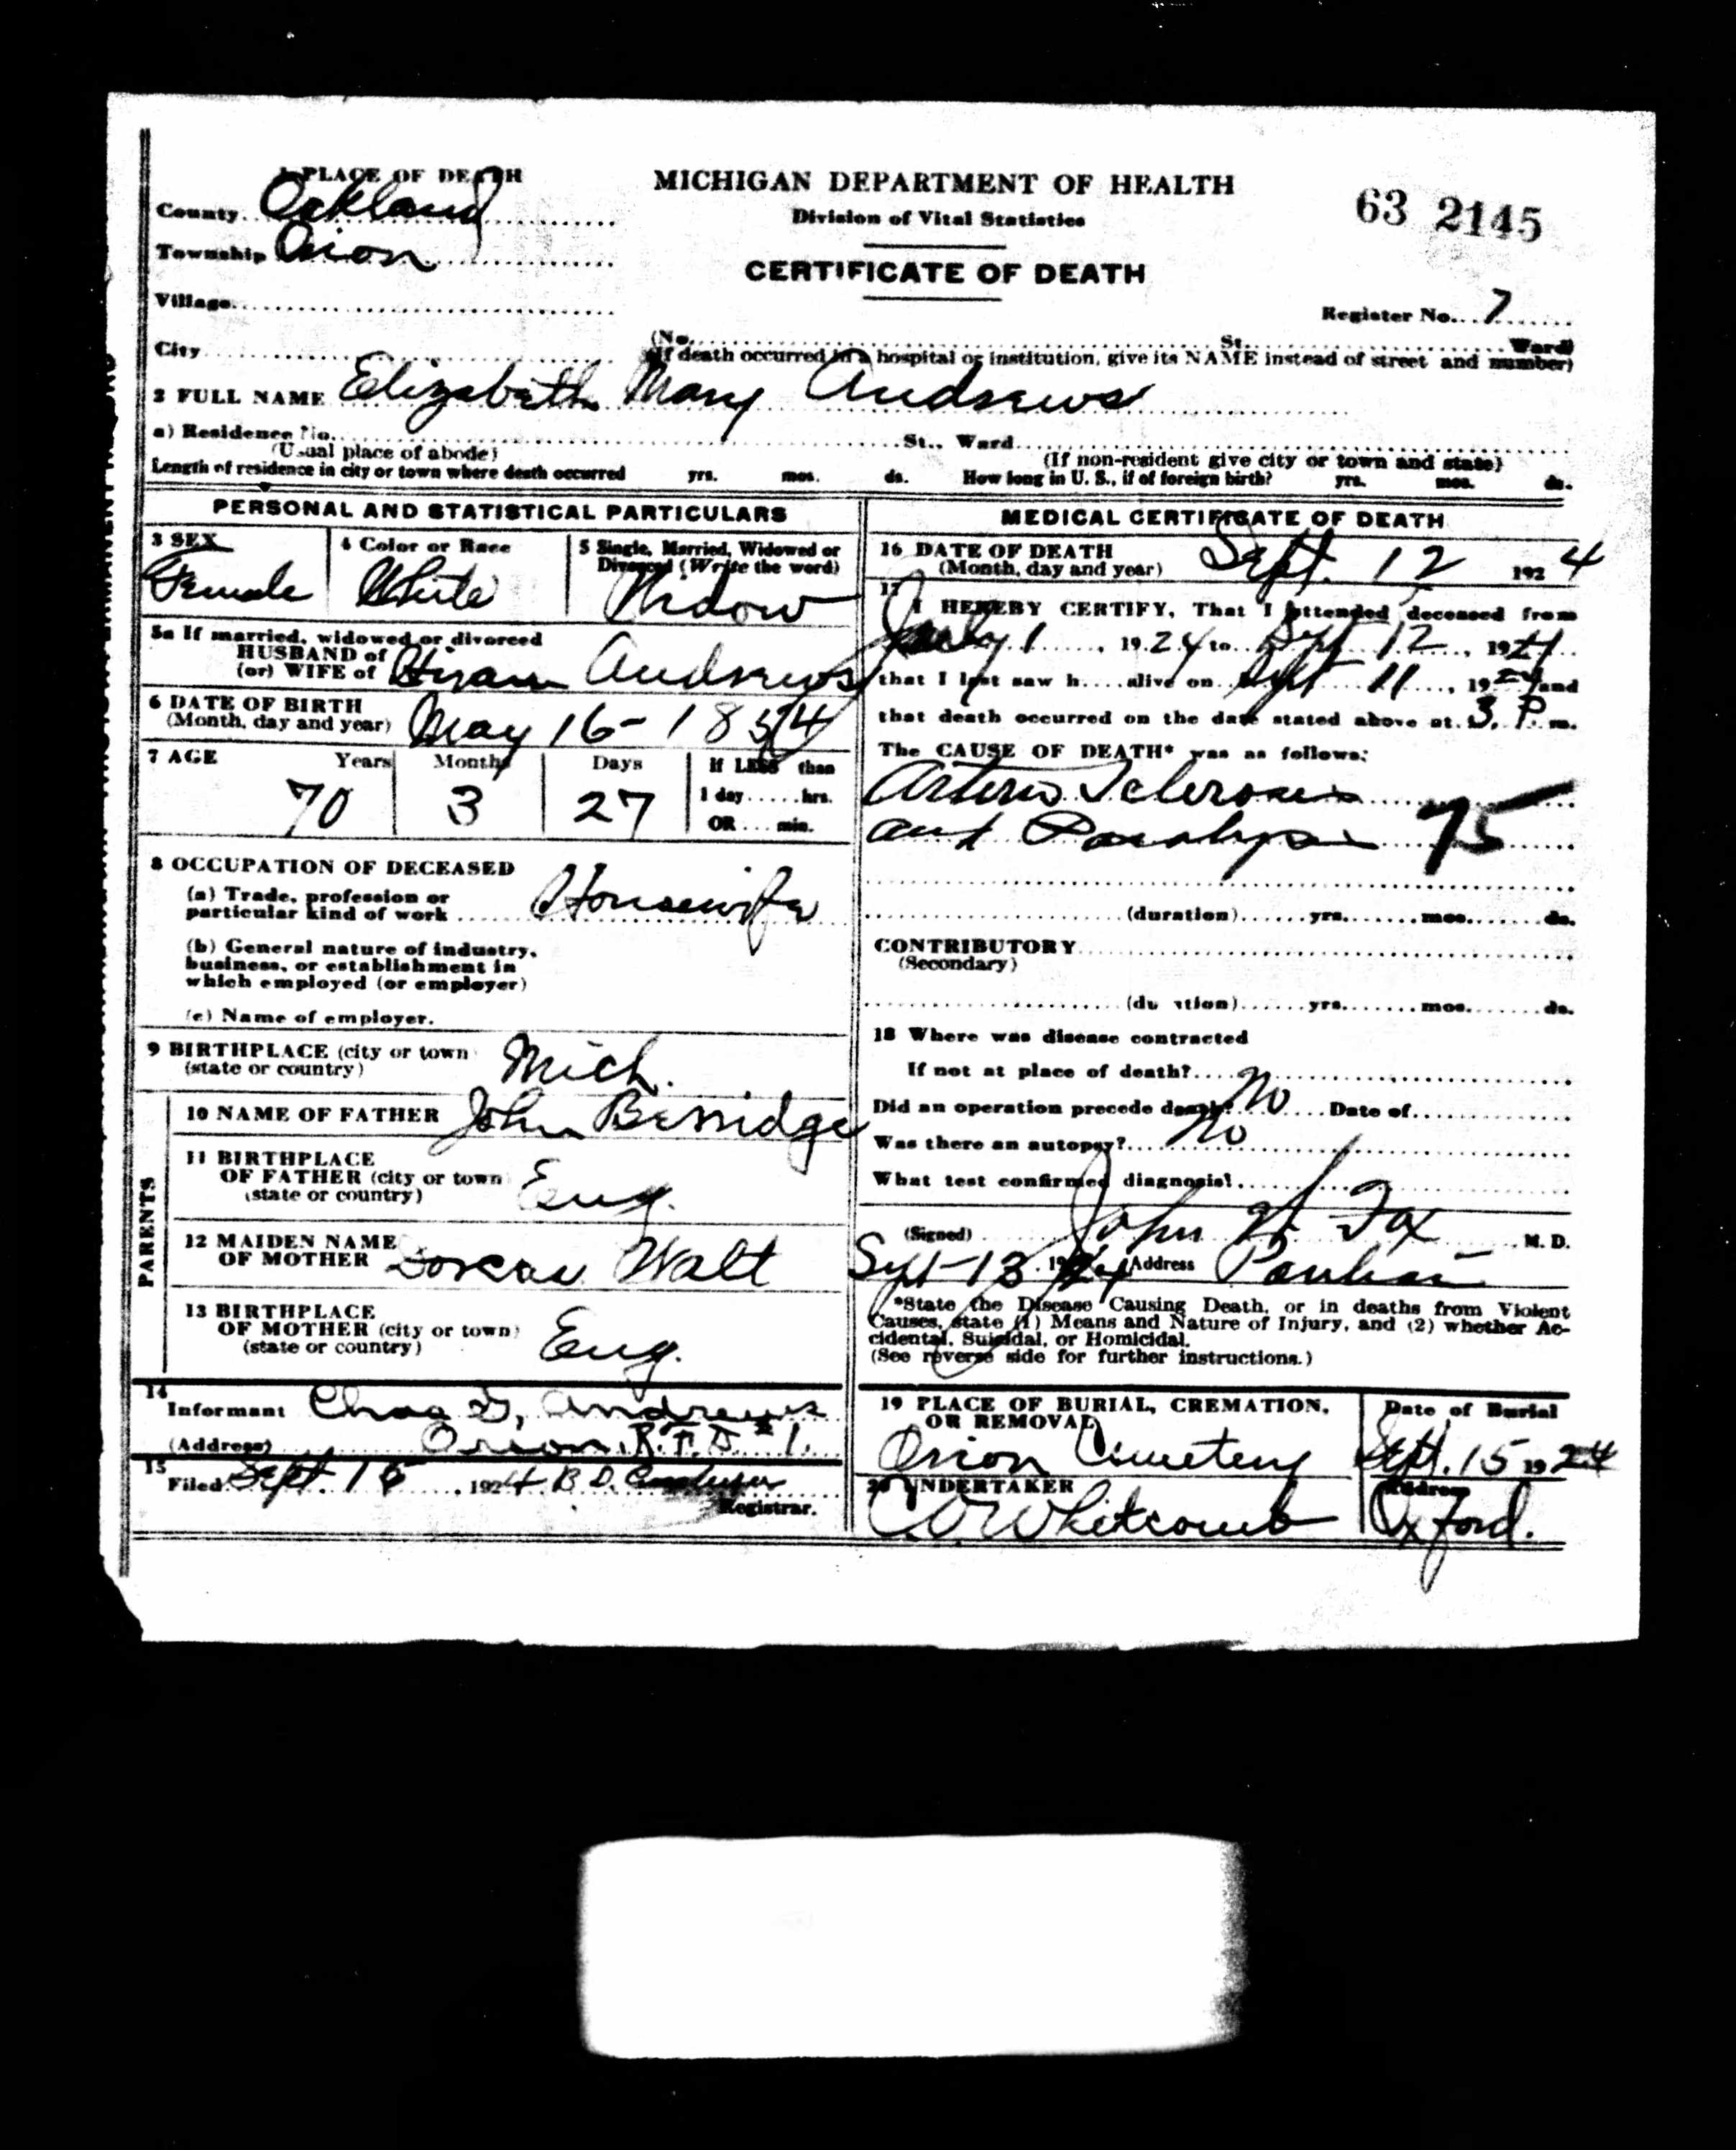 1 PLACE OF DEATH
County Oakland
Township Orion
Village
City
MICHIGAN DEPARTMENT OF HEALTH
Division of Vital Statistics
CERTIFICATE OF DEATH
63 2145
Register No. 7
(No. St. Ward)
(If death occurred in a hospital or institution, give its NAME instead of street and number)
2 FULL NAME Elizabeth Mary Andrews
a) Residence No. St., Ward
(Usual place of abode) (If non-resident give city or town and state)
Length of residence in city or town where death occurred yrs. mos. ds. How long in U. S., if of foreign birth? yrs. mos. ds.
PERSONAL AND STATISTICAL PARTICULARS
3 SEX 4 Color or Race 5 Single, Married, Widowed or
Divorced (Write the word)
Female White Widow
5a If married, widowed or divorced
HUSBAND of
(or) WIFE of Hiram Andrews
6 DATE OF BIRTH
(Month, day and year) May 16 - 1854
7 AGE Years Months Days If LESS than
70 3 27 1 day hrs.
OR min.
8 OCCUPATION OF DECEASED
(a) Trade, profession or
particular kind of work Housewife
(b) General nature of industry,
business, or establishment in
which employed (or employer)
(c) Name of employer.
9 BIRTHPLACE (city or town
(state or country) Mich.
PARENTS
10 NAME OF FATHER John Berridge
11 BIRTHPLACE
OF FATHER (city or town
(state or country) Eng.
12 MAIDEN NAME
OF MOTHER Dorcas Walt
13 BIRTHPLACE
OF MOTHER (city or town)
(state or country) Eng.
14
Informant Chas G, Andrews
(Address) Orion, R.F.D #1.
15
Filed Sept. 15, 1924 B D.
Registrar.
MEDICAL CERTIFICATE OF DEATH
16 DATE OF DEATH
(Month, day and year) Sept. 12 1924
17
I HEREBY CERTIFY, That I attended deceased from
July 1, 1924 to Sept 12, 1924
that I last saw h alive on Sept 11, 1924 and
that death occurred on the date stated above at 3. P. m.
The CAUSE OF DEATH* was as follows:
Arterio Sclerosis
and Paralysis 75
(duration) yrs. mos. ds.
CONTRIBUTORY
(Secondary)
(du tion) yrs. mos. ds.
18 Where was disease contracted
If not at place of death?
Did an operation precede death? No Date of
Was there an autopsy? No
What test confirmed diagnosis?
(Signed) John W Fox M. D.
Sept 13 1924 Address
*State the Disease Causing Death, or in deaths from Violent
Causes, state (1) Means and Nature of Injury, and (2) whether Ac-
cidental, Suicidal, or Homicidal.
(See reverse side for further instructions.)
19 PLACE OF BURIAL, CREMATION,
OR REMOVAL
Orion Cemetery
Date of Burial
Sept. 15 1924
20 UNDERTAKER
C. O Whitcomb
Address
Oxford.